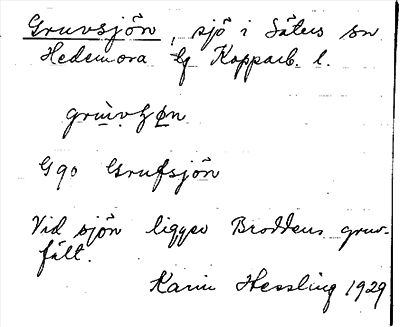 Gruvsjön, sjö i Säters sn
Hedemora tg Kopparb. l.
grùvʃøn
G 90 Grufsjön
Vid sjön ligger Broddens gruv-
fält.
Karin Hessling 1929